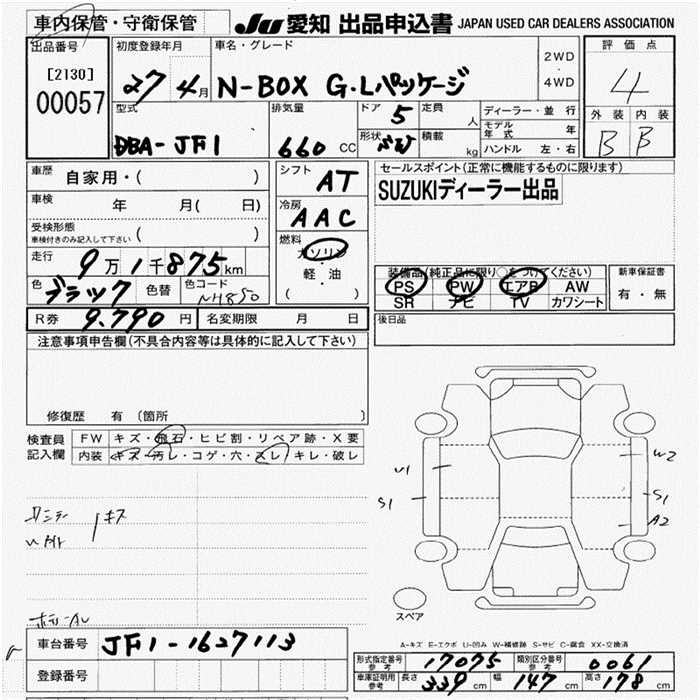 車内保管・守衛保管
JU 愛知 出品申込書 JAPAN USED CAR DEALERS ASSOCIATION
出品番号 初度登録年月 車名・グレード 評価点
[2130]
00057 27 4月 N-BOX G・Lパッケージ 2WD・4WD 4
型式 排気量 ドア 5 定員 人 ディーラー・並行 外装 内装
DBA-JF1 660 CC 形状 積載 kg モデル年式 年 B B
ハンドル 左・右
車歴 自家用・( ) シフト AT セールスポイント(正常に機能するものに限ります)
車検 年 月( 日) 冷房 AAC SUZUKIディーラー出品
受検形態 車検付きのみ記入して下さい ( ) 燃料 ガソリン・軽・油 ( )
走行 9万1千875km 装備品(純正品に限り○をつけてください) 新車保証書
色 ブラック 色替 色コード NH850 PS PW エアB AW 有・無
SR ナビ TV カワシート
R券 9.790円 名変期限 月 日 後日品
注意事項申告欄(不具合内容等は具体的に記入して下さい)
修復歴 有 (箇所 )
検査員記入欄 FW キズ・飛石・ヒビ割・リペア跡・X要
内装 キズ・汚レ・コゲ・穴・スレ・キレ・破レ
U1 W2
S1 S1
A2
キズ
スペア
A-キズ E-エクボ U-凹み W-補修跡 S-サビ C-腐食 XX-交換済
車台番号 JF1-1627113
登録番号
形式指定番号 参考 17075 類別区分番号 参考 0061
車庫証明用 参考 長さ 339cm 幅 147cm 高さ 178cm